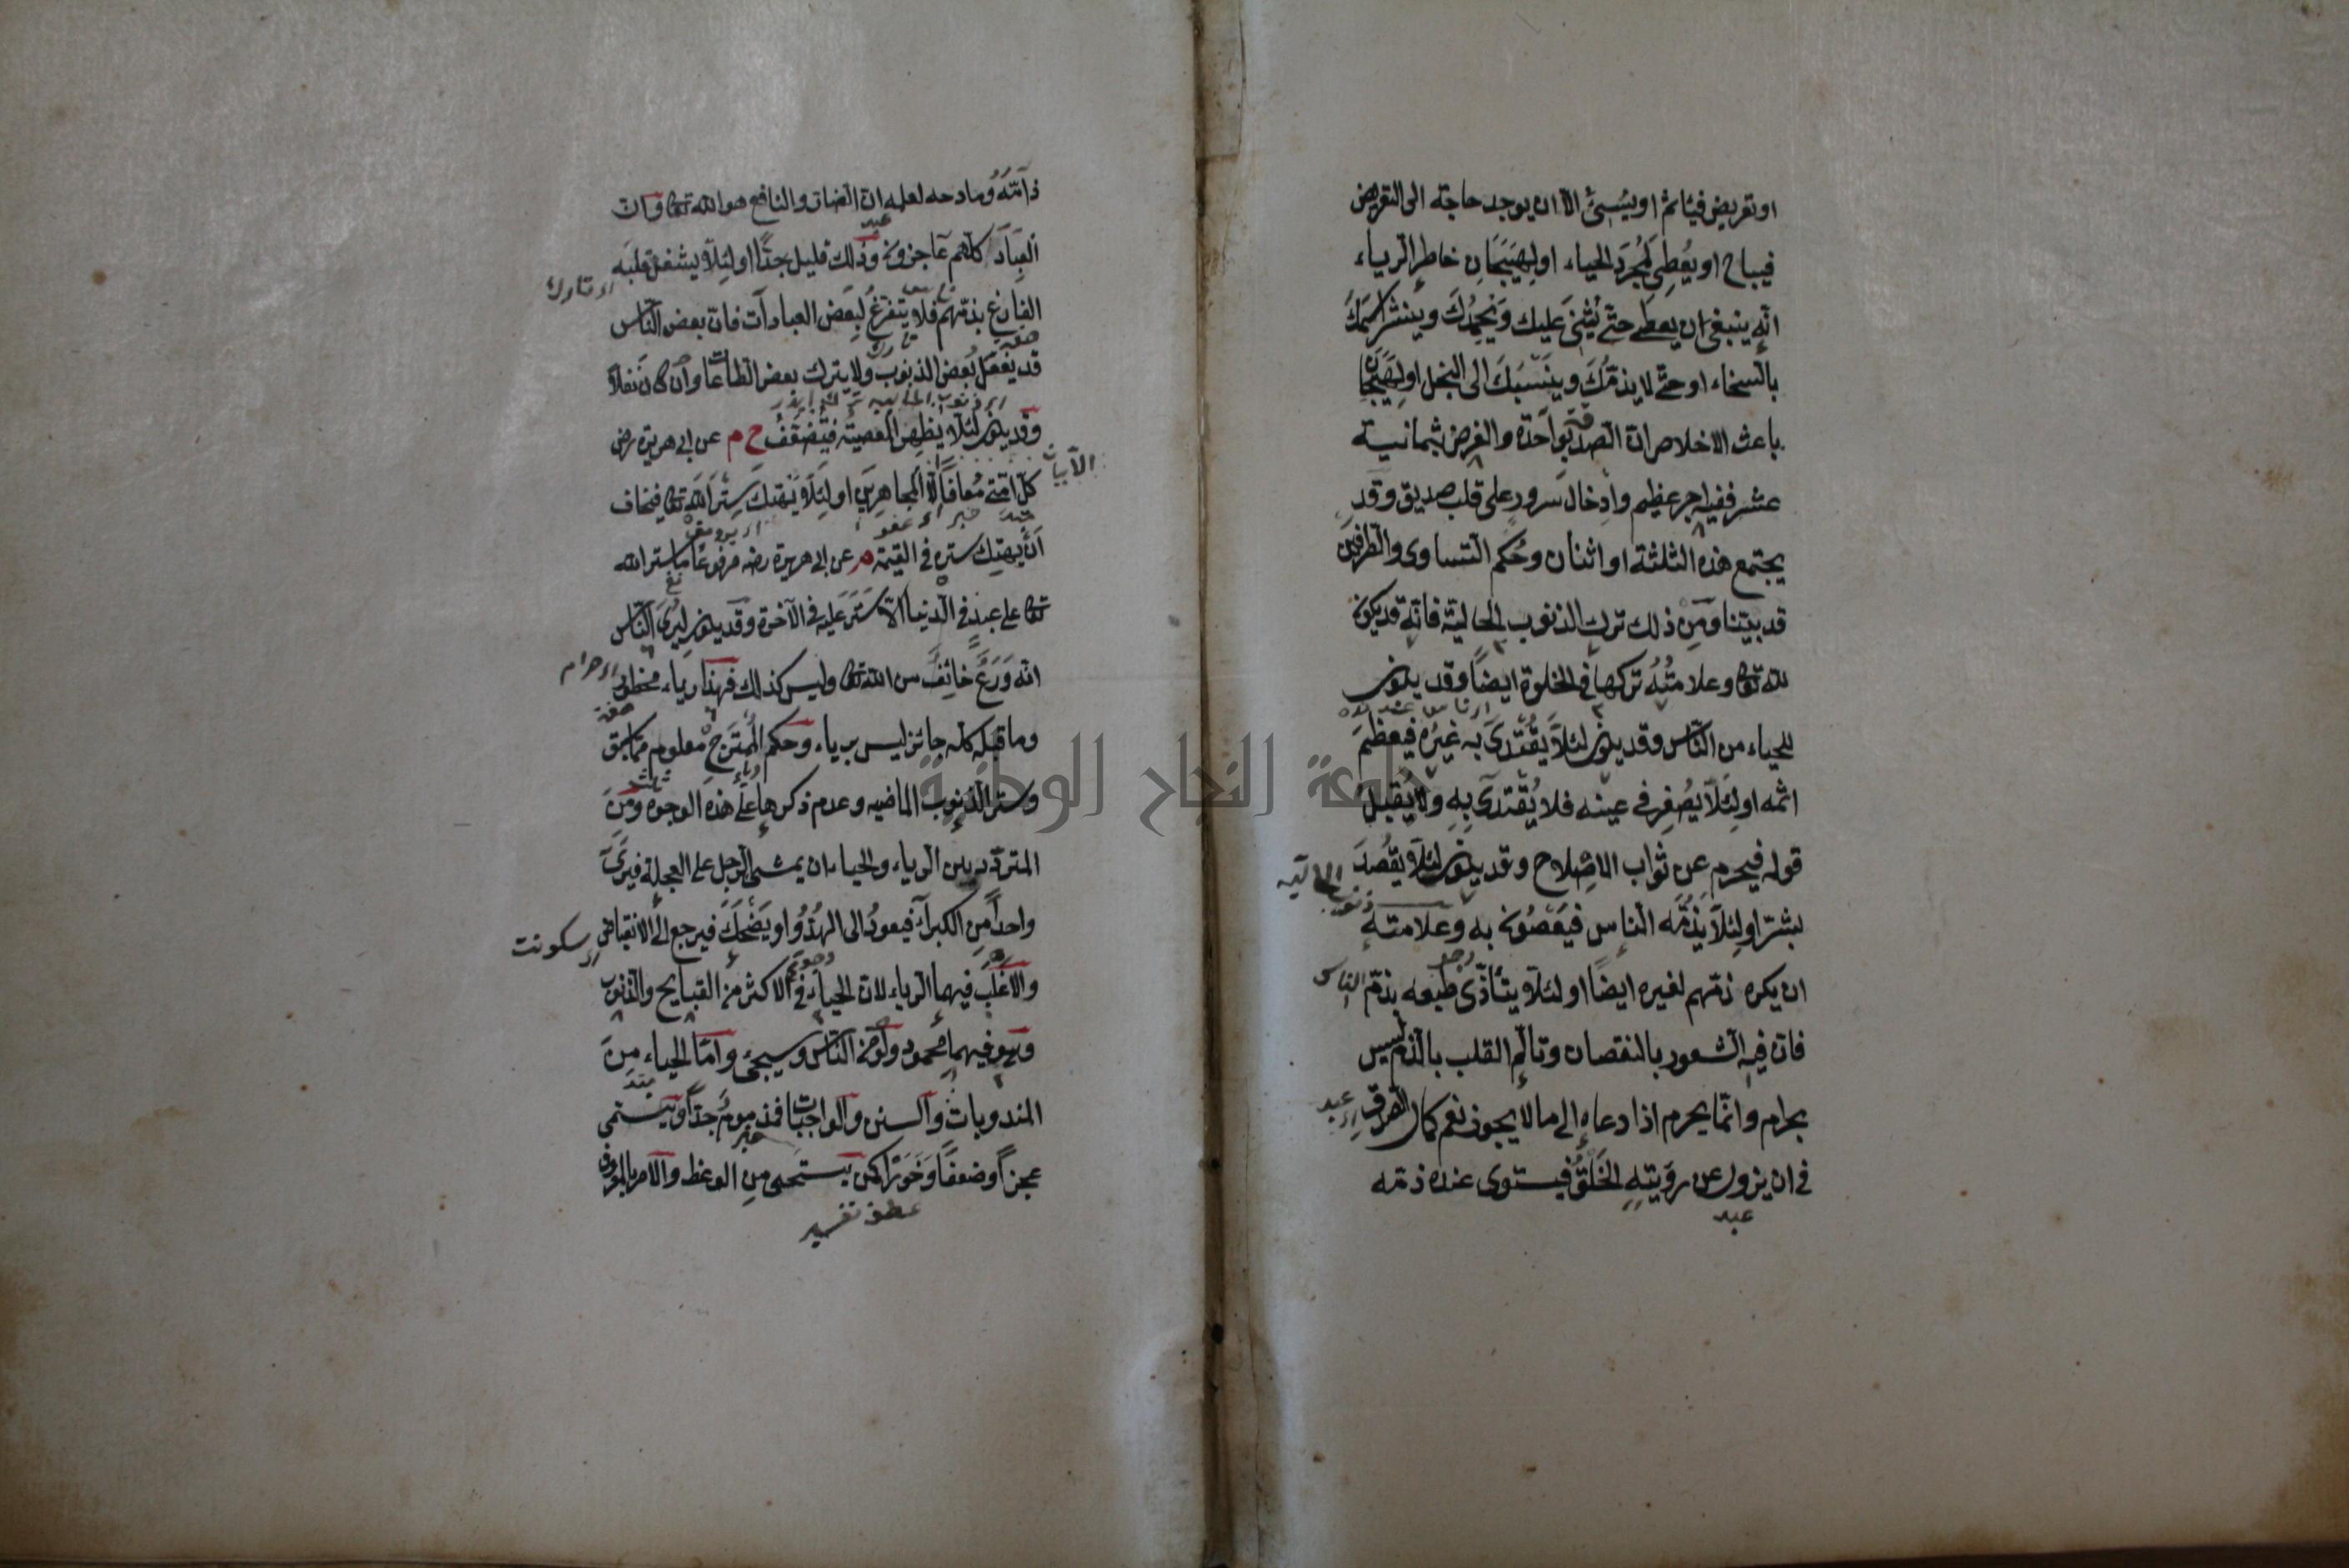 او تعريض فيأثم او يسئ الا ان يوجد حاجة الى التعريض
فيباح او يعطى لمجرد الحياء او لهيجان خاطر الرياء
انه ينبغى ان يعطى حتى يثنى عليك ويحمدك وينشر اسمك
بالسخاء او حتى لا يذمك وينسبك الى البخل او لهيجان
باعث الاخلاص ان الصدقة بواحدة والقرض بثمانية
عشر ففيه اجر عظيم وادخال سرور على قلب صديق وقد
يجتمع هذه الثلثة او اثنان وحكم التساوى والطرفين
قد بيّنا ومن ذلك ترك الذنوب الحالية فانه قد يكون
لله تعا وعلامته تركها فى الخلوة ايضا وقد يكون
للحياء من الناس وقد يكون لئلا يقتدى به غيره فيعظم
اثمه او لئلا يصغر فى عينه فلا يقتدى به ولا يقبل
قوله فيحرم عن ثواب الاصلاح وقد يكون لئلا يقصد
الحالية
ذنوب
بشر او لئلا يذمه الناس فيعصون به وعلامته
ان يكره ذمهم لغيره ايضا او لئلا يتأذى طبعه بذم الناس
فان فيه الشعور بالنقصان وتألم القلب بالذم ليس
بحرام وانما يحرم اذا دعاه الى ما لا يجوز نعم كمال الصدق
اى عبد
فى ان يزول عن رؤيته الخلق فيستوى عنده ذمه
عبد
ذامه ومادحه لعلمه ان الضار والنافع هو الله تعا وان
عبد
العباد كلهم عاجزون وذلك قليل جدا او لئلا يشغل قلبه
اى تارك
الفارغ بذمهم فلا يتفرغ لبعض العبادات فان بعض الناس
قد يفعل بعض الذنوب ولا يترك بعض الطاعات وان كان نفلا
وقد يكون لئلا يظهر المعصية فيتضعف خ م عن ابى هريرة رضى
كل امتى معافا الا المجاهرين او لئلا يهتك ستر الله تعا فيخاف
ان يهتك ستره فى القيمة م عن ابى هريرة رضه مرفوعا ما ستر الله
تعا على عبد فى الدنيا الا ستر عليه فى الآخرة وقد يكون ليرى الناس
انه ورع خائف من الله تعا وليس كذلك فهذا رياء محظور
اى حرام
وما قبله كله جائز ليس برياء وحكم الممتزج معلوم مما سبق
وستر الذنوب الماضيه وعدم ذكرها على هذه الوجوه ومن
المتردد بين الرياء والحياء ان يمشى الرجل على العجلة فيرى
واحدا من الكبراء فيعود الى الهدو او يضحك فيرجع الى الانقباض
اى سكونت
والاغلب فيهما الرياء لان الحياء فى الاكثر من القبايح والذنوب
وهو فيهما محمود ولو من الناس وسيجئ واما الحياء من
المندوبات والسنن والواجبات فمذموم جدا ويسمى
عجزا وضعفا وخورا كمن يستحى من الوعظ والامر بالمعروف
عطف تفسير